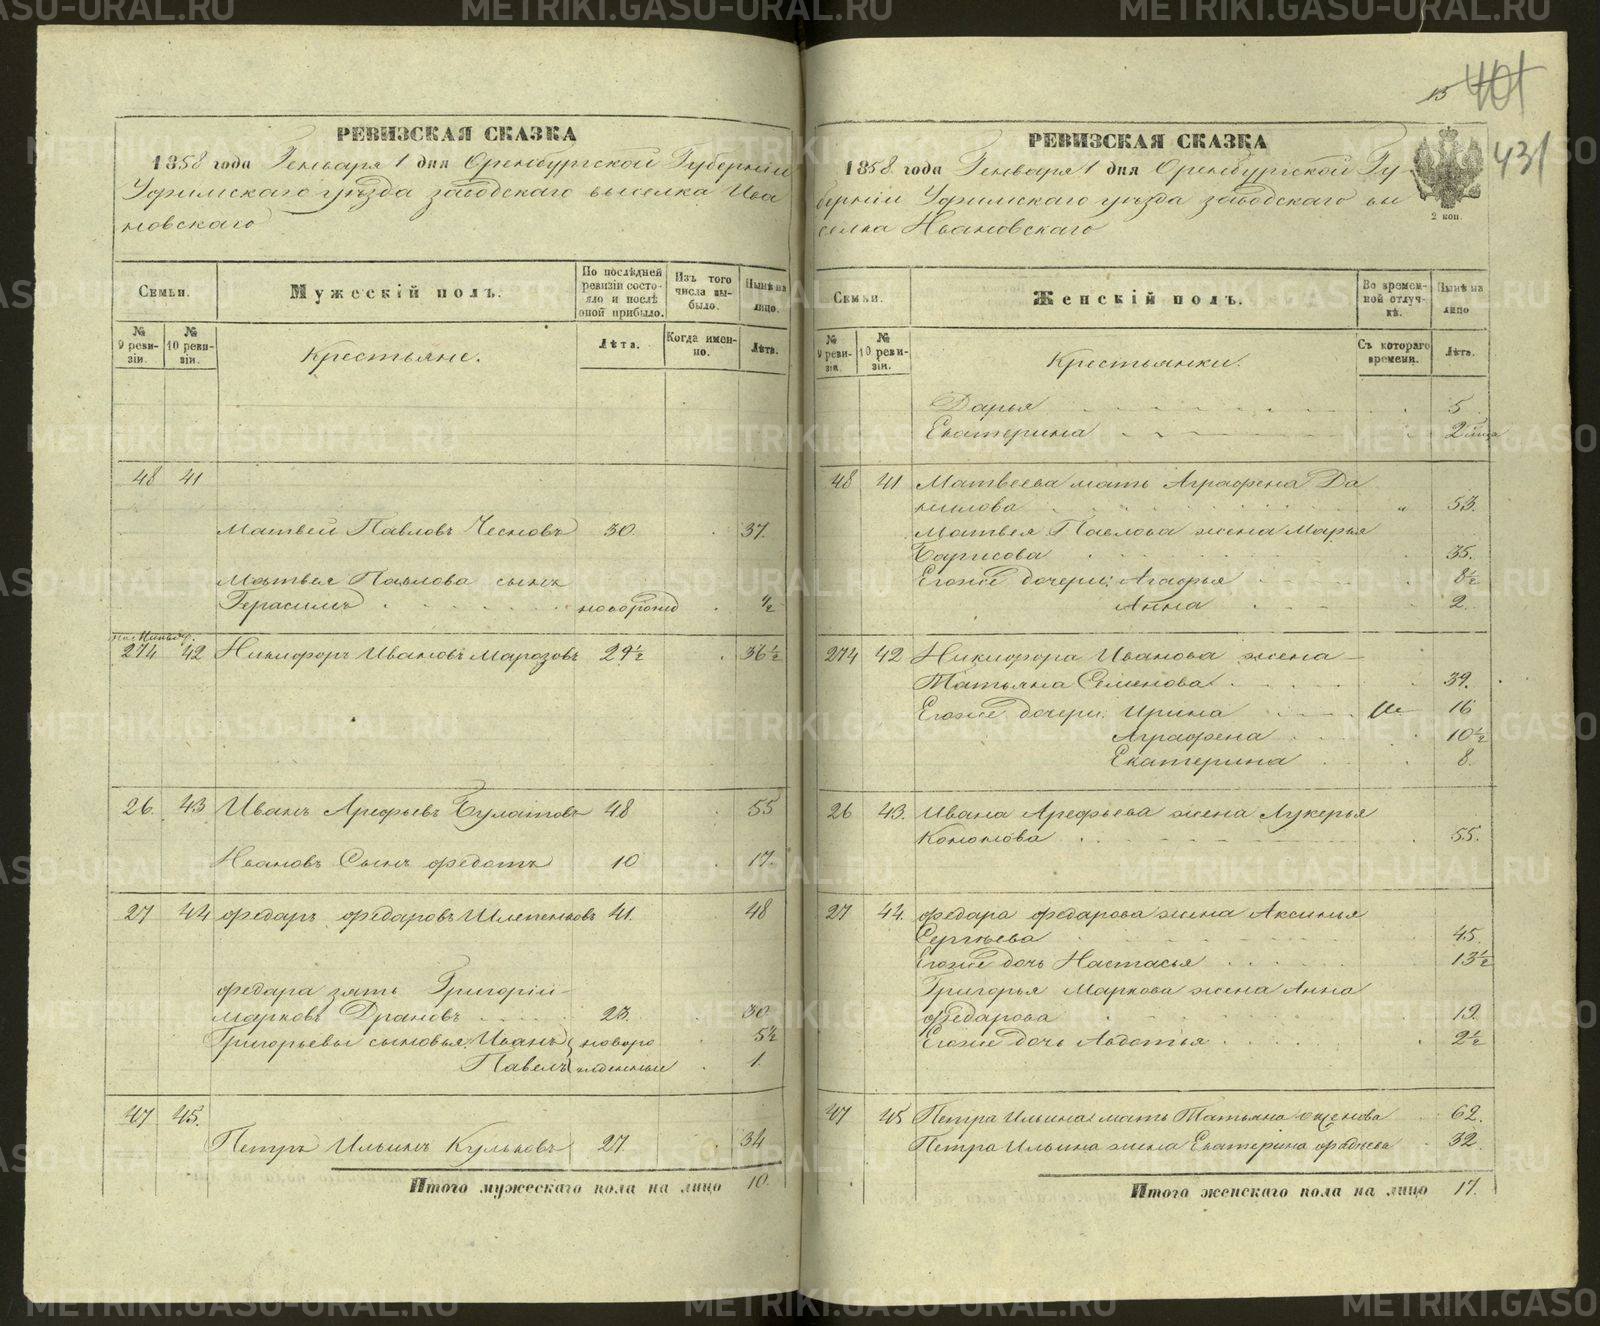 METRIKI.GASO-URAL.RU
15 401
431
РЕВИЗСКАЯ СКАЗКА
1858 года Генваря 1 дня Оренбургской Губерніи
Уфимскаго уѣзда заводскаго выселка Ива
новскаго
Семьи.
Мужескій полъ.
По послѣдней ревизіи состояло и послѣ оной прибыло.
Изъ того числа выбыло.
Нынѣ на лицо.
№ 9 ревизіи.
№ 10 ревизіи.
Крестьяне.
Лѣта.
Когда именно.
Лѣта.
48 41
Матвей Павловъ Чесновъ 30. 37.
Матвея Павлова сынъ
Герасимъ новорожд ½
274 42 Никифоръ Ивановъ Марозовъ 29½ 36½
26. 43 Иванъ Арефьевъ Булатовъ 48 55
Ивановъ Сынъ Федотъ 10 17.
27 44 Федаръ Федаровъ Шлепенковъ 41. 48
Федара зять Григорій
Марковъ Драновъ 23. 30.
Григорьевы сыновья Иванъ новоро 5½
Павелъ жденные 1.
47 45.
Петръ Ильинъ Кульковъ 27. 34
Итого мужескаго пола на лицо 10.
РЕВИЗСКАЯ СКАЗКА
1858 года Генваря 1 дня Оренбургской Гу-
берніи Уфимскаго уѣзда заводскаго вы
селка Ивановскаго
2 коп.
Семьи.
Женскій полъ.
Во временной отлучкѣ.
Нынѣ на лицо
№ 9 ревизіи.
№ 10 ревизіи.
Крестьянки.
Съ котораго времени.
Лѣта.
Дарья 5
Екатерина 2
48 41 Матвеева мать Аграфена Да
нилова " 53.
Матвея Павлова жена Марья
Барисова 35.
Егоже дочери: Агафья 8½
Анна 2.
274 42 Никифора Иванова жена
Татьяна Семенова 39.
Егоже дочери: Ирина 16
Аграфена 10½
Екатерина 8.
26 43. Ивана Арефьева жена Лукерья
Кононова 55.
27 44. Федара Федарова жена Аксинья
Сергѣева 45.
Егоже дочь Настасья 13½
Григорья Маркова жена Анна
Федарова 19.
Егоже дочь Авдотья 2½
47 45 Петра Ильина мать Татьяна 62.
Петра Ильина жена Екатерина 32.
Итого женскаго пола на лицо 17.